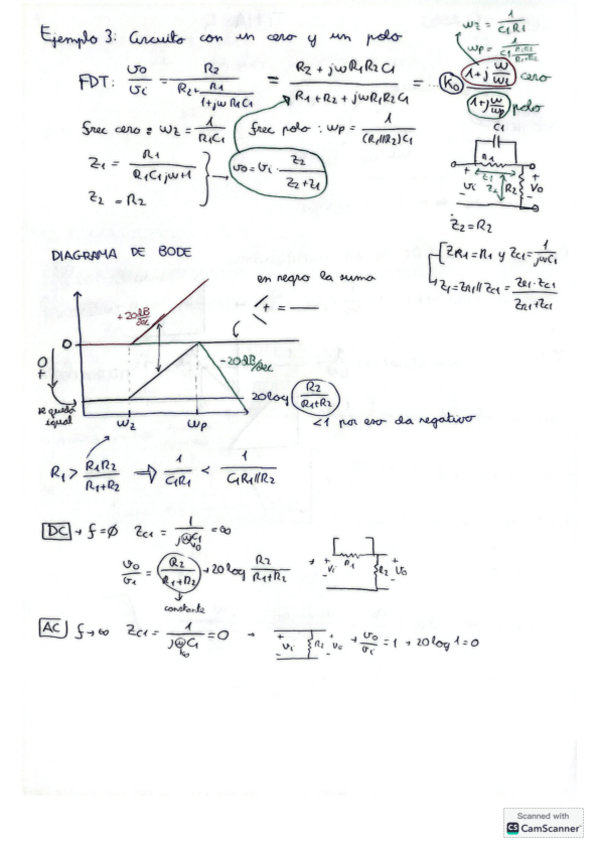 Ejemplo 3: Circuito con un cero y un polo
wz = 1 / C1R1
wp = 1 / C1 R1R2/R1+R2
FDT: vo/vi = R2 / (R2 + R1/(1+jwR1C1)) = (R2 + jwR1R2C1) / (R1+R2+jwR1R2C1) = ... K0 (1+j w/wz) / (1+j w/wp)
cero
polo
frec cero: wz = 1 / R1C1
frec polo: wp = 1 / (R1||R2)C1
Z1 = R1 / (R1C1jw+1)
Z2 = R2
vo = vi · Z2 / (Z2+Z1)
C1
R1
+ Z1 +
vi Z2 R2 Vo
- -
Z2 = R2
ZR1 = R1 y ZC1 = 1/jwC1
Z1 = ZR1 || ZC1 = ZR1·ZC1 / (ZR1+ZC1)
DIAGRAMA DE BODE
en negro la suma
+20dB/dec
/ + \ = —
0
-20dB/dec
0
+
se queda
igual
20log R2/(R1+R2)
wz wp
<1 por eso da negativo
R1 > R1R2/(R1+R2) ⇒ 1/C1R1 < 1/C1R1||R2
DC → f = ø ZC1 = 1/jwC1 = ∞
vo/vi = R2/(R1+R2) → 20log R2/(R1+R2)
constante
+ Vi - R1 R2 + Vo -
AC f → ∞ ZC1 = 1/jwC1 = 0 → + Vi - R2 + Vo - → vo/vi = 1 → 20log1 = 0
Scanned with
CS CamScanner